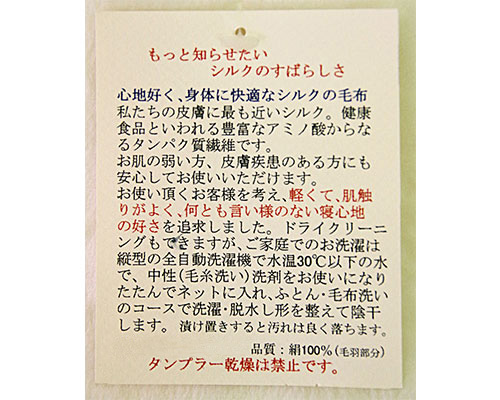 もっと知らせたい
シルクのすばらしさ
心地好く、身体に快適なシルクの毛布
私たちの皮膚に最も近いシルク。健康
食品といわれる豊富なアミノ酸からな
るタンパク質繊維です。
お肌の弱い方、皮膚疾患のある方にも
安心してお使いいただけます。
お使い頂くお客様を考え、軽くて、肌触
りがよく、何とも言い様のない寝心地
の好さを追求しました。ドライクリーニ
ングもできますが、ご家庭でのお洗濯は
縦型の全自動洗濯機で水温30℃以下の水
で、中性(毛糸洗い)洗剤をお使いになり
たたんでネットに入れ、ふとん・毛布洗い
のコースで洗濯・脱水し形を整えて陰干
します。漬け置きすると汚れは良く落ちます。
品質：絹100%(毛羽部分)
タンプラー乾燥は禁止です。